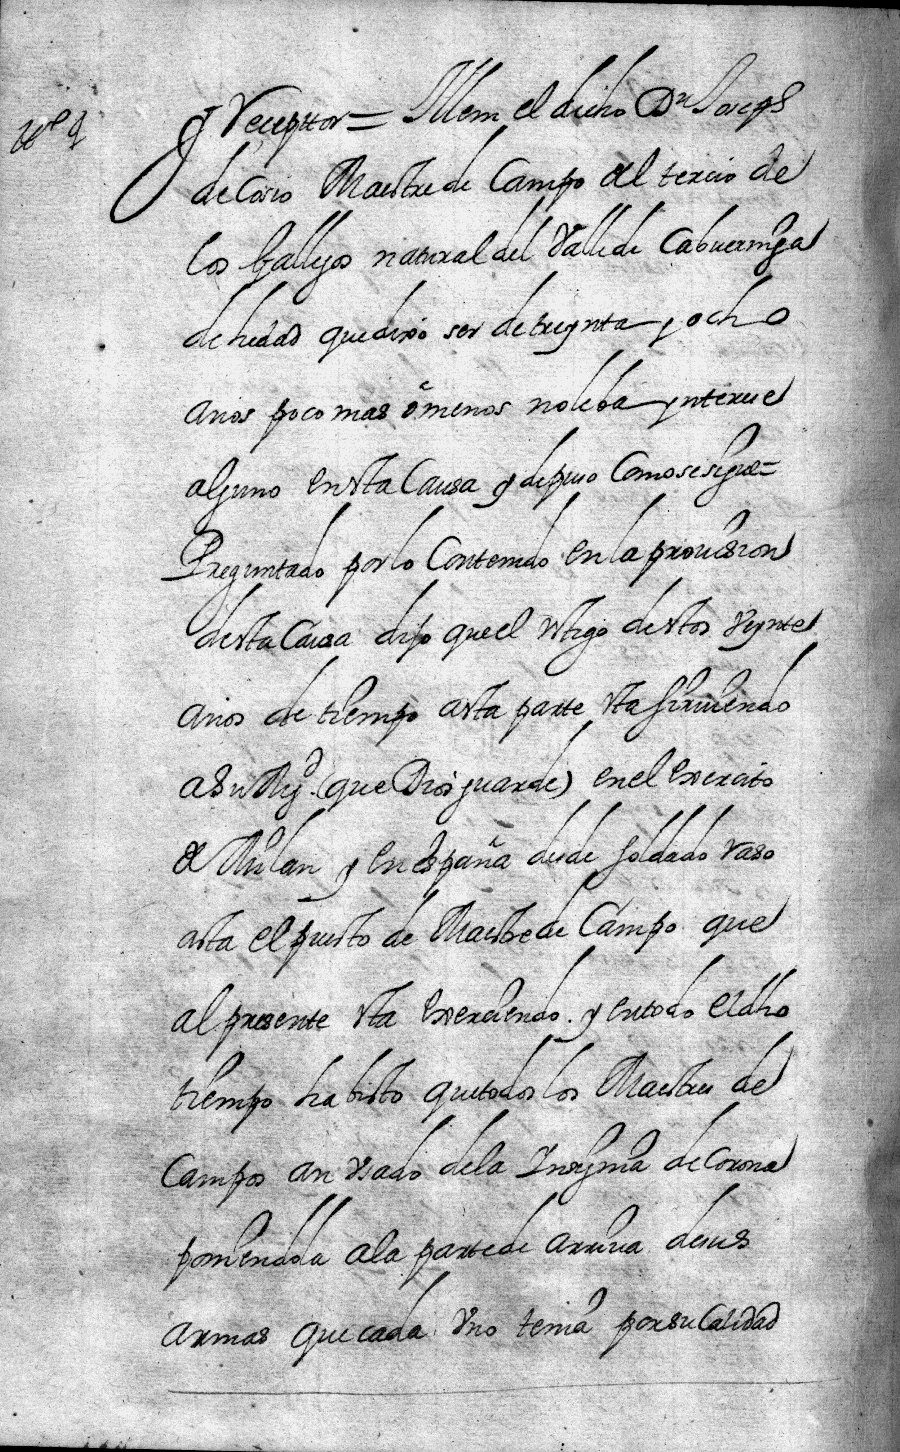 y Receptor = Ittem el dicho Dn Joseph
de Cosio Maestre de Campo del tercio de
los gallegos natural del Valle de Cabuerniga
de hedad que dixo ser de treynta y ocho
años poco mas ó menos no le ba ynterue
alguno en esta Causa y depuso Como se sigue =
Preguntado por lo Contenido en la prouission
desta Causa dijo que el testigo destos Veynte
años de tiempo a esta parte esta siruiendo
a Su Mgd. (que Dios guarde) en el exercito
de Milan y en españa desde soldado raso
asta el puesto de Maestre de Campo que
al presente esta exerciendo. y en todo el dho
tiempo ha bisto que todos los Maestres de
Campos an Vsado de la Ynsignia de Corona
poniendola a la parte de arriua de sus
armas que cada Vno tenia por su Calidad